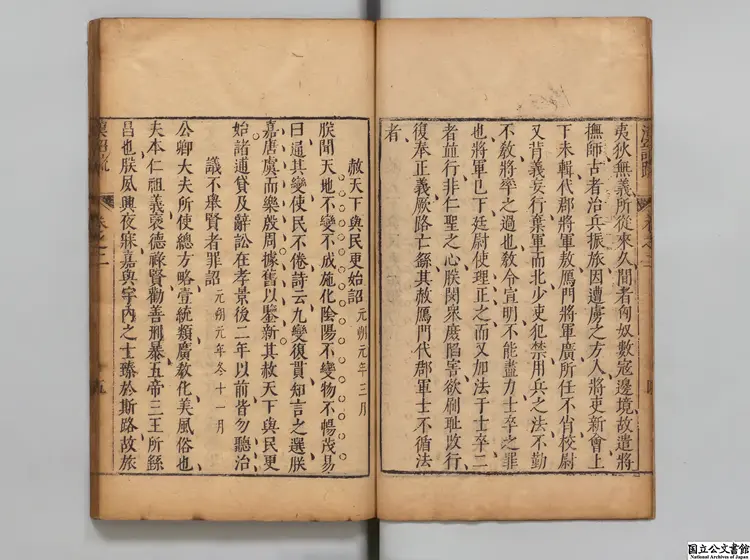 夷狄無義所從來久間者匈奴數寇邊境故遣將
撫師古者治兵振旅因遭虜之方入將吏新會上
下未輯代郡將軍敖鴈門將軍廣所任不肖校尉
又背義妄行棄軍而北少吏犯禁用兵之法不勤
不敎將率之過也敎令宣明不能盡力士卒之罪
也將軍已下廷尉使理正之而又加法于士卒二
者並行非仁聖之心朕閔衆庶陷害欲刷耻改行
復奉正義厥路亡繇其赦鴈門代郡軍士不循法
者
赦天下與民更始詔 元朔元年三月
朕聞天地不變不成施化陰陽不變物不暢茂易
曰通其變使民不倦詩云九變復貫知言之選朕
嘉唐虞而樂殷周據舊以鑒新其赦天下與民更
始諸逋貸及辭訟在孝景後二年以前皆勿聽治
議不舉賢者罪詔 元朔元年冬十一月
公卿大夫所使總方略壹統類廣敎化美風俗也
夫本仁祖義褒德祿賢勸善刑暴五帝三王所繇
昌也朕夙興夜寐嘉與宇內之士臻於斯路故旅
漢詔疏 卷之二 五
国立公文書館
National Archives of Japan